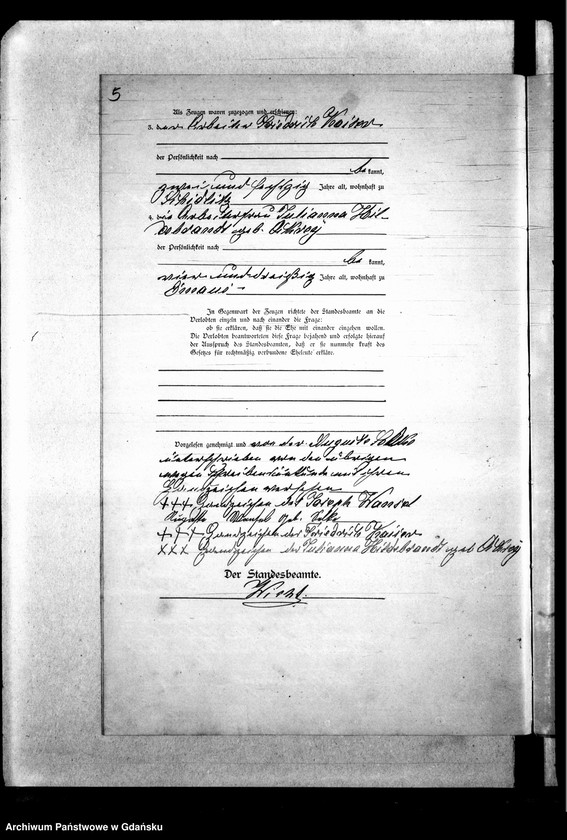 5
Als Zeugen waren zugezogen und erschienen:
3. der Arbeiter Friedrich Kaiser
der Persönlichkeit nach
be kannt,
zwei und sechszig Jahre alt, wohnhaft zu
Schidlitz
4. die Arbeiterfrau Julianna Hil-
debrandt geb.
der Persönlichkeit nach
be kannt,
vier und dreißig Jahre alt, wohnhaft zu
Emaus
In Gegenwart der Zeugen richtete der Standesbeamte an die
Verlobten einzeln und nach einander die Frage:
ob sie erklären, daß sie die Ehe mit einander eingehen wollen.
Die Verlobten beantworteten diese Frage bejahend und erfolgte hierauf
der Ausspruch des Standesbeamten, daß er sie nunmehr kraft des
Gesetzes für rechtmäßig verbundene Eheleute erkläre.
Vorgelesen genehmigt und von der Auguste
unterschrieben von den übrigen
wegen Schreibensunkunde mit ihren
Handzeichen versehen
+++ Handzeichen des Joseph
Auguste geb.
+++ Handzeichen des Friedrich Kaiser
XXX Handzeichen der Julianna Hildebrandt geb.
Der Standesbeamte.
Archiwum Państwowe w Gdańsku